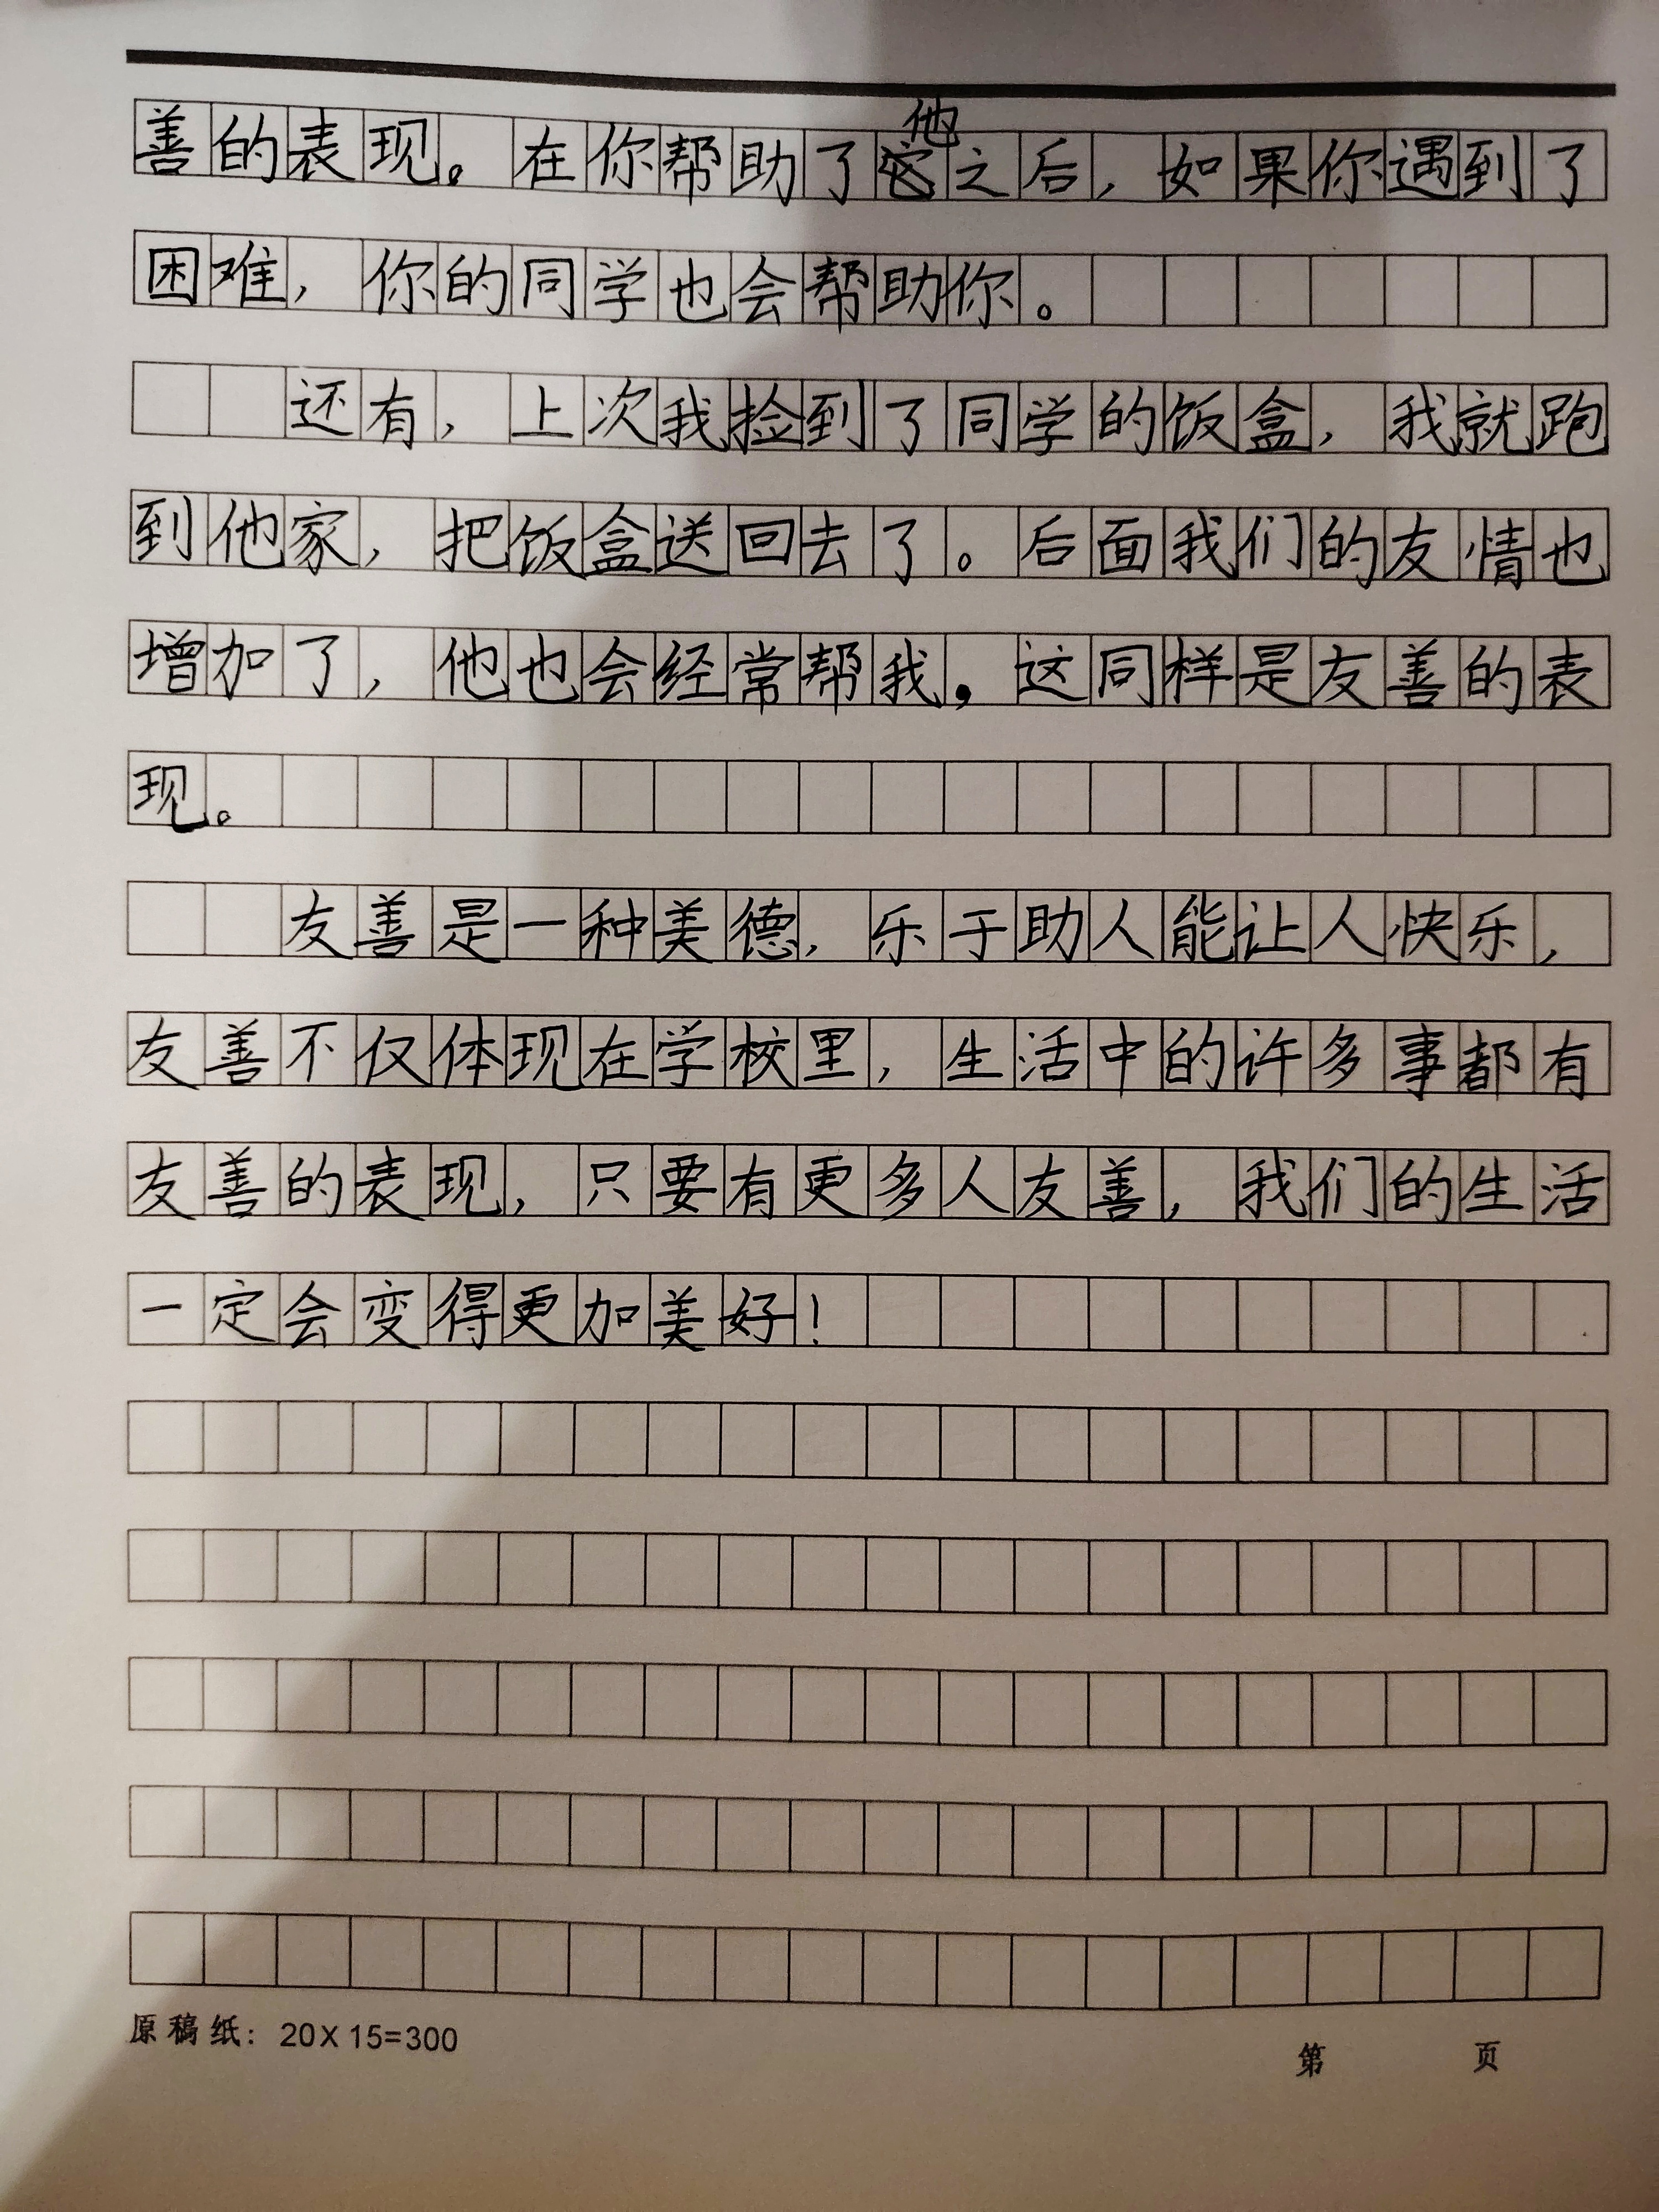 善的表现。在你帮助了他之后，如果你遇到了
困难，你的同学也会帮助你。
还有，上次我捡到了同学的饭盒，我就跑
到他家，把饭盒送回去了。后面我们的友情也
增加了，他也会经常帮我，这同样是友善的表
现。
友善是一种美德，乐于助人能让人快乐，
友善不仅体现在学校里，生活中的许多事都有
友善的表现，只要有更多人友善，我们的生活
一定会变得更加美好！
原稿纸：20X15=300
第 页